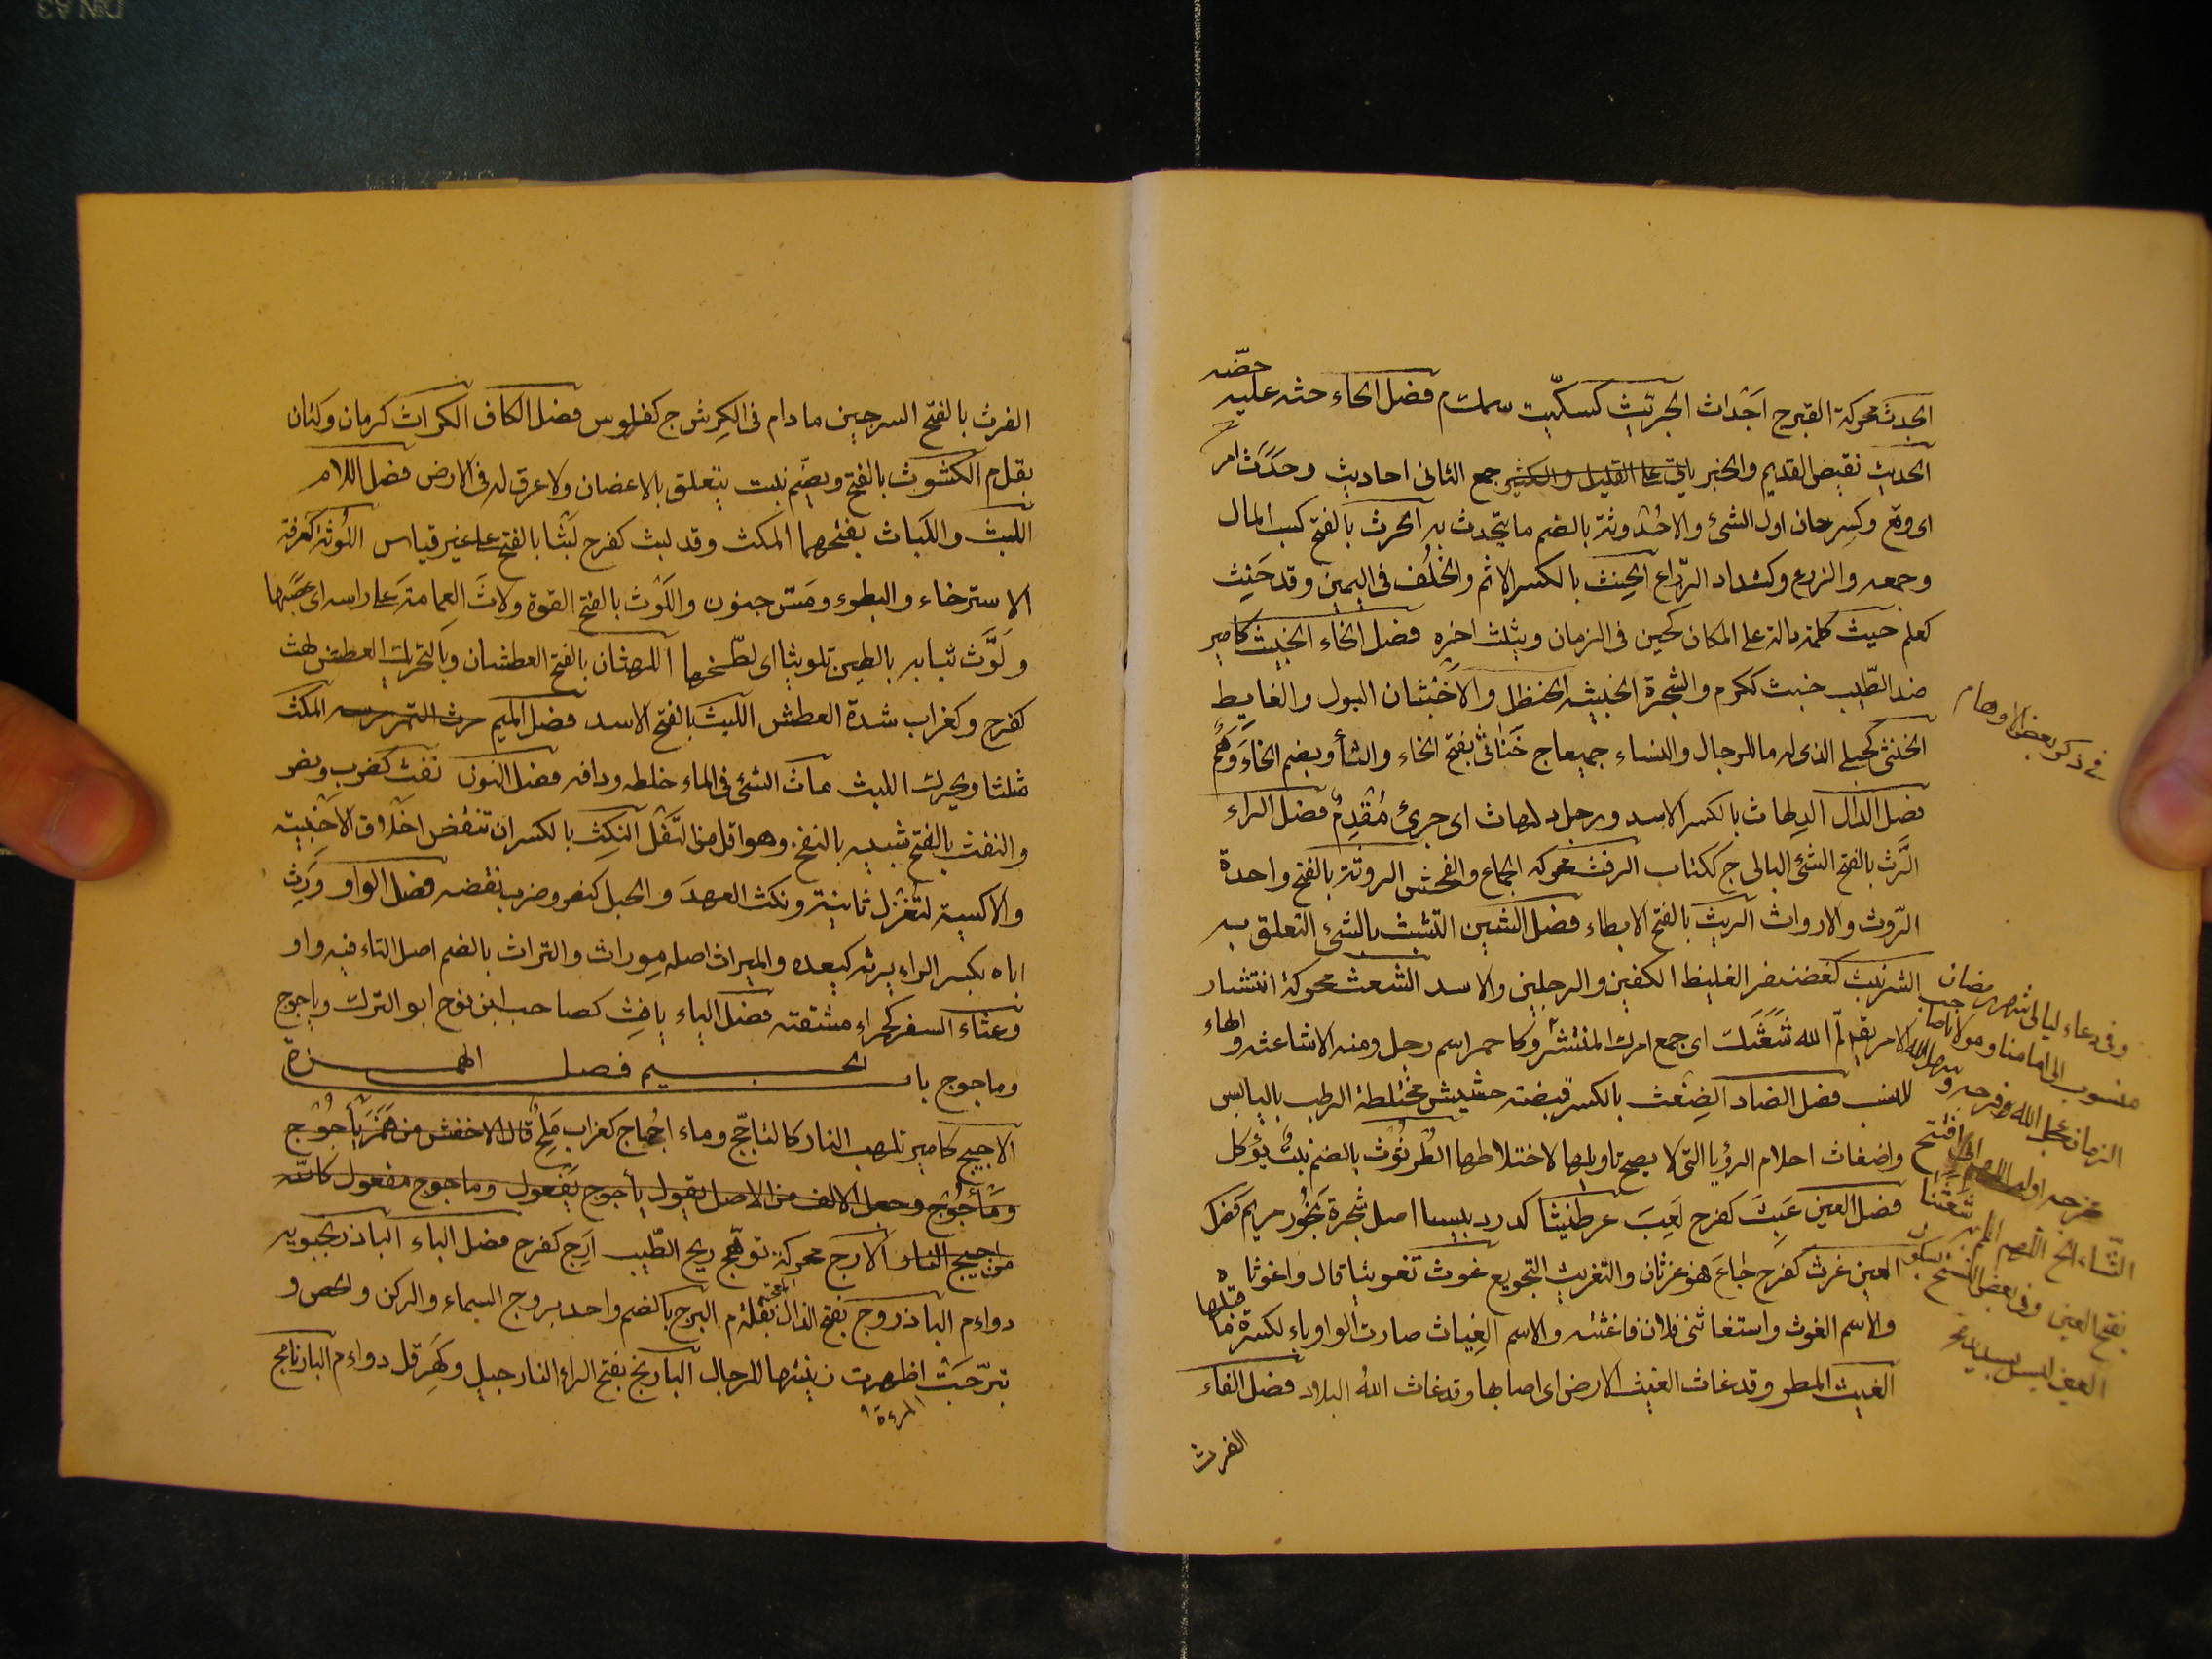 الجدث محركة القبر ج اجداث الجريث كسكيت سمك م فصل الحاء حثه عليه حضّه
الحديث نقيض القديم والخبر ياتى على القليل والكثير جمع الثانى احاديث وحَدَثَ امر
اى وقع وكسرحان اول الشئ والاحدوثة بالضم ما يتحدث به الحرث بالفتح كسب المال
وجمعه والزرع وكشداد الزراع الحِنث بالكسر الاثم والخُلف فى اليمين وقد حَنِث
كعلم حيث كلمة دالة على المكان كحين فى الزمان ويثلث اخره فصل الخاء الخبيث كامير
ضد الطيب خبث ككرم والشجرة الخبيثه الحنظل والاخبثان البول والغايط
الخنثى كحبلى الذى له ما للرجال والنساء جميعا ج خَناثى بفتح الخاء والثا وبضم الخاء
فصل الدال الدِلهاث بالكسر الاسد ورجل دلهاث اى جرئ مُقْدِمٌ فصل الراء
الرَّث بالفتح الشئ البالى ج ككتاب الرفث محركة الجماع والفحش الروثة بالفتح واحدة
الرّوث والارواث الريث بالفتح الابطاء فصل الشين التشبث بالشئ التعلق به
الشرنبث كغضنفر الغليظ الكفين والرجلين والاسد الشعث محركة انتشار
الامر يقه لَمّ الله شَعَثَك اى جمع امرك المنتشر وكاحمر اسم رجل ومنه الاشاعثه والهاء
للنسب فصل الضاد الضِغث بالكسر قبضته حشيش مختلطة الرطب باليابس
واضغاث احلام الرؤيا التى لا يصح تاويلها لاختلاطها الطُرثوث بالضم نبت يؤكل
فصل العين عَبِثَ كفرح لَعِبَ عرطنيثا اصل شجرة بَخُور مريم فصل
الغين غرث كفرح جاعَ هو غرثان والتغريث التجويع غوث تغويثا قال واغوثاه
والاسم الغوث واستغاثنى فلان فاغثته والاسم الغِياث صارت الواو ياء لكسرة ما قبلها
الغيث المطر وقد غاث الغيث الارض اى اصابها وقد غاث اللهُ البلاد فصل الفاء
الفرث
فى ذكر بعض الاوهام
وفى دعاء ليالى شهر رمضان
منسوب الى امامنا ومولانا صاحب
الزمان عجل الله فرجه
فرجه اوله اللهم انى افتتح
الثناء الخ اللهم المم به شعثنا
بفتح العين وفى بعض النسخ بسكون
العين ليس
الفرث بالفتح السرجين ما دام فى الكِرش ج كفلوس فصل الكاف الكراث كرمان وكتان
بقل م الكشوث بالفتح ويضم نبت يتعلق بالاغصان ولا عرق له فى الارض فصل اللام
اللبث واللَباث بفتحهما المكث وقد لبث كفرح لَبْثًا بالفتح على غير قياس اللُوثة كغرفة
الاسترخاء والبطوء ومَسّ جنون واللَوْث بالفتح القوة ولاثَ العِمامة على راسه اى عَصَبَها
ولَوَّث ثيابه بالطين تلويثا اى لطّخها اللهثان بالفتح العطشان وبالتحريك العطش لهث
كفرح وكغراب شدة العطش الليث بالفتح الاسد فصل الميم مرث التمر مرسه المكث
مثلثا ويحرك اللبث ماث الشئ فى الماء خلطه ودافه فصل النون نفث كضرب ونصر
والنفث بالفتح شبيه بالنفخ وهو اقل من التَفْل النِكث بالكسر ان تنقض اخلاق الاخبية
والاكسية لتُغزل ثانية ونكث العهدَ والحبل كنصر وضرب نقضه فصل الواو وَرِث
اباه بكسر الراء يرثه كيعده والميراث اصله مِوراث والتراث بالضم اصل التاء فيه واو
وعثاء السفر كحمراء مشقته فصل الياء يافِث كصاحب ابن نوح ابو الترك وياجوج
وماجوج باب الجيم فصل الهمزة
الاجيج كامير تلهب النار كالتاجّج وماء اجاج كغراب مِلح قال الاخفش من هَمَزَ يأجوج
ومأجوج وجعل الالف من الاصل يقول يأجوج يَفْعول وماجوج مفعول كانّه
من اجيج النار الارج محركة توهّج ريح الطيب اَرِج كفرح فصل الباء الباذرنجبويه
دواء م الباذروج بفتح الذال المعجمة بقلة م البرج بالضم واحد بروج السماء والركن والحصن و
تبرّجَتْ المرءة اظهرت زينتها للرجال البارنج بفتح الراء النارجيل وكهرقل دواء م البارنامج